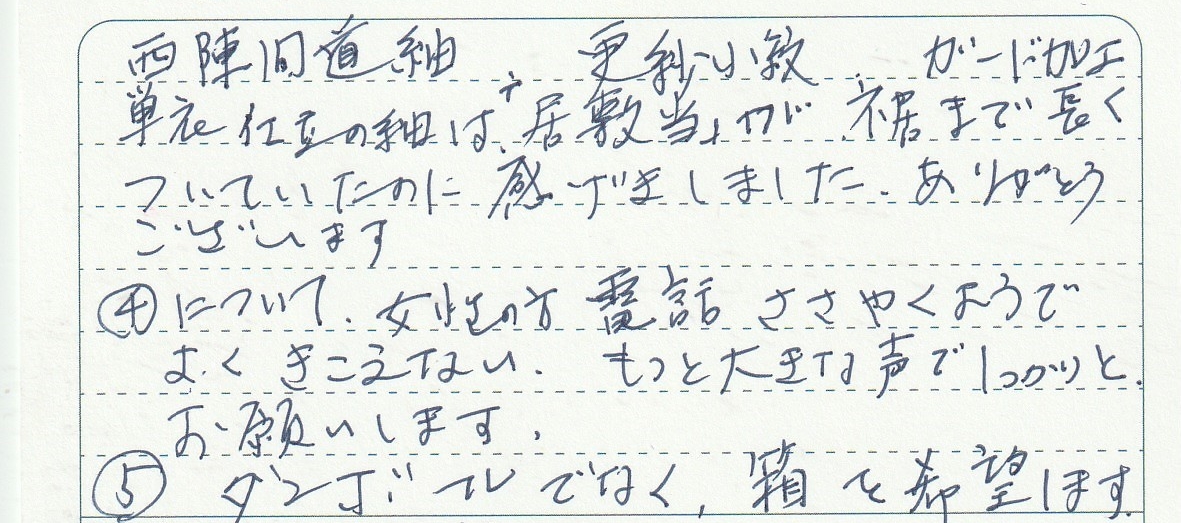 西陣間道紬 更紗小紋 ガード加工
単衣仕立の紬は、居敷当が裾まで長く
ついていたのに感げきしました。ありがとう
ございます
④について、女性の方 電話 ささやくようで
よく きこえない. もっと大きな声でしっかりと.
お願いします.
⑤ ダンボールでなく, 箱を希望します.